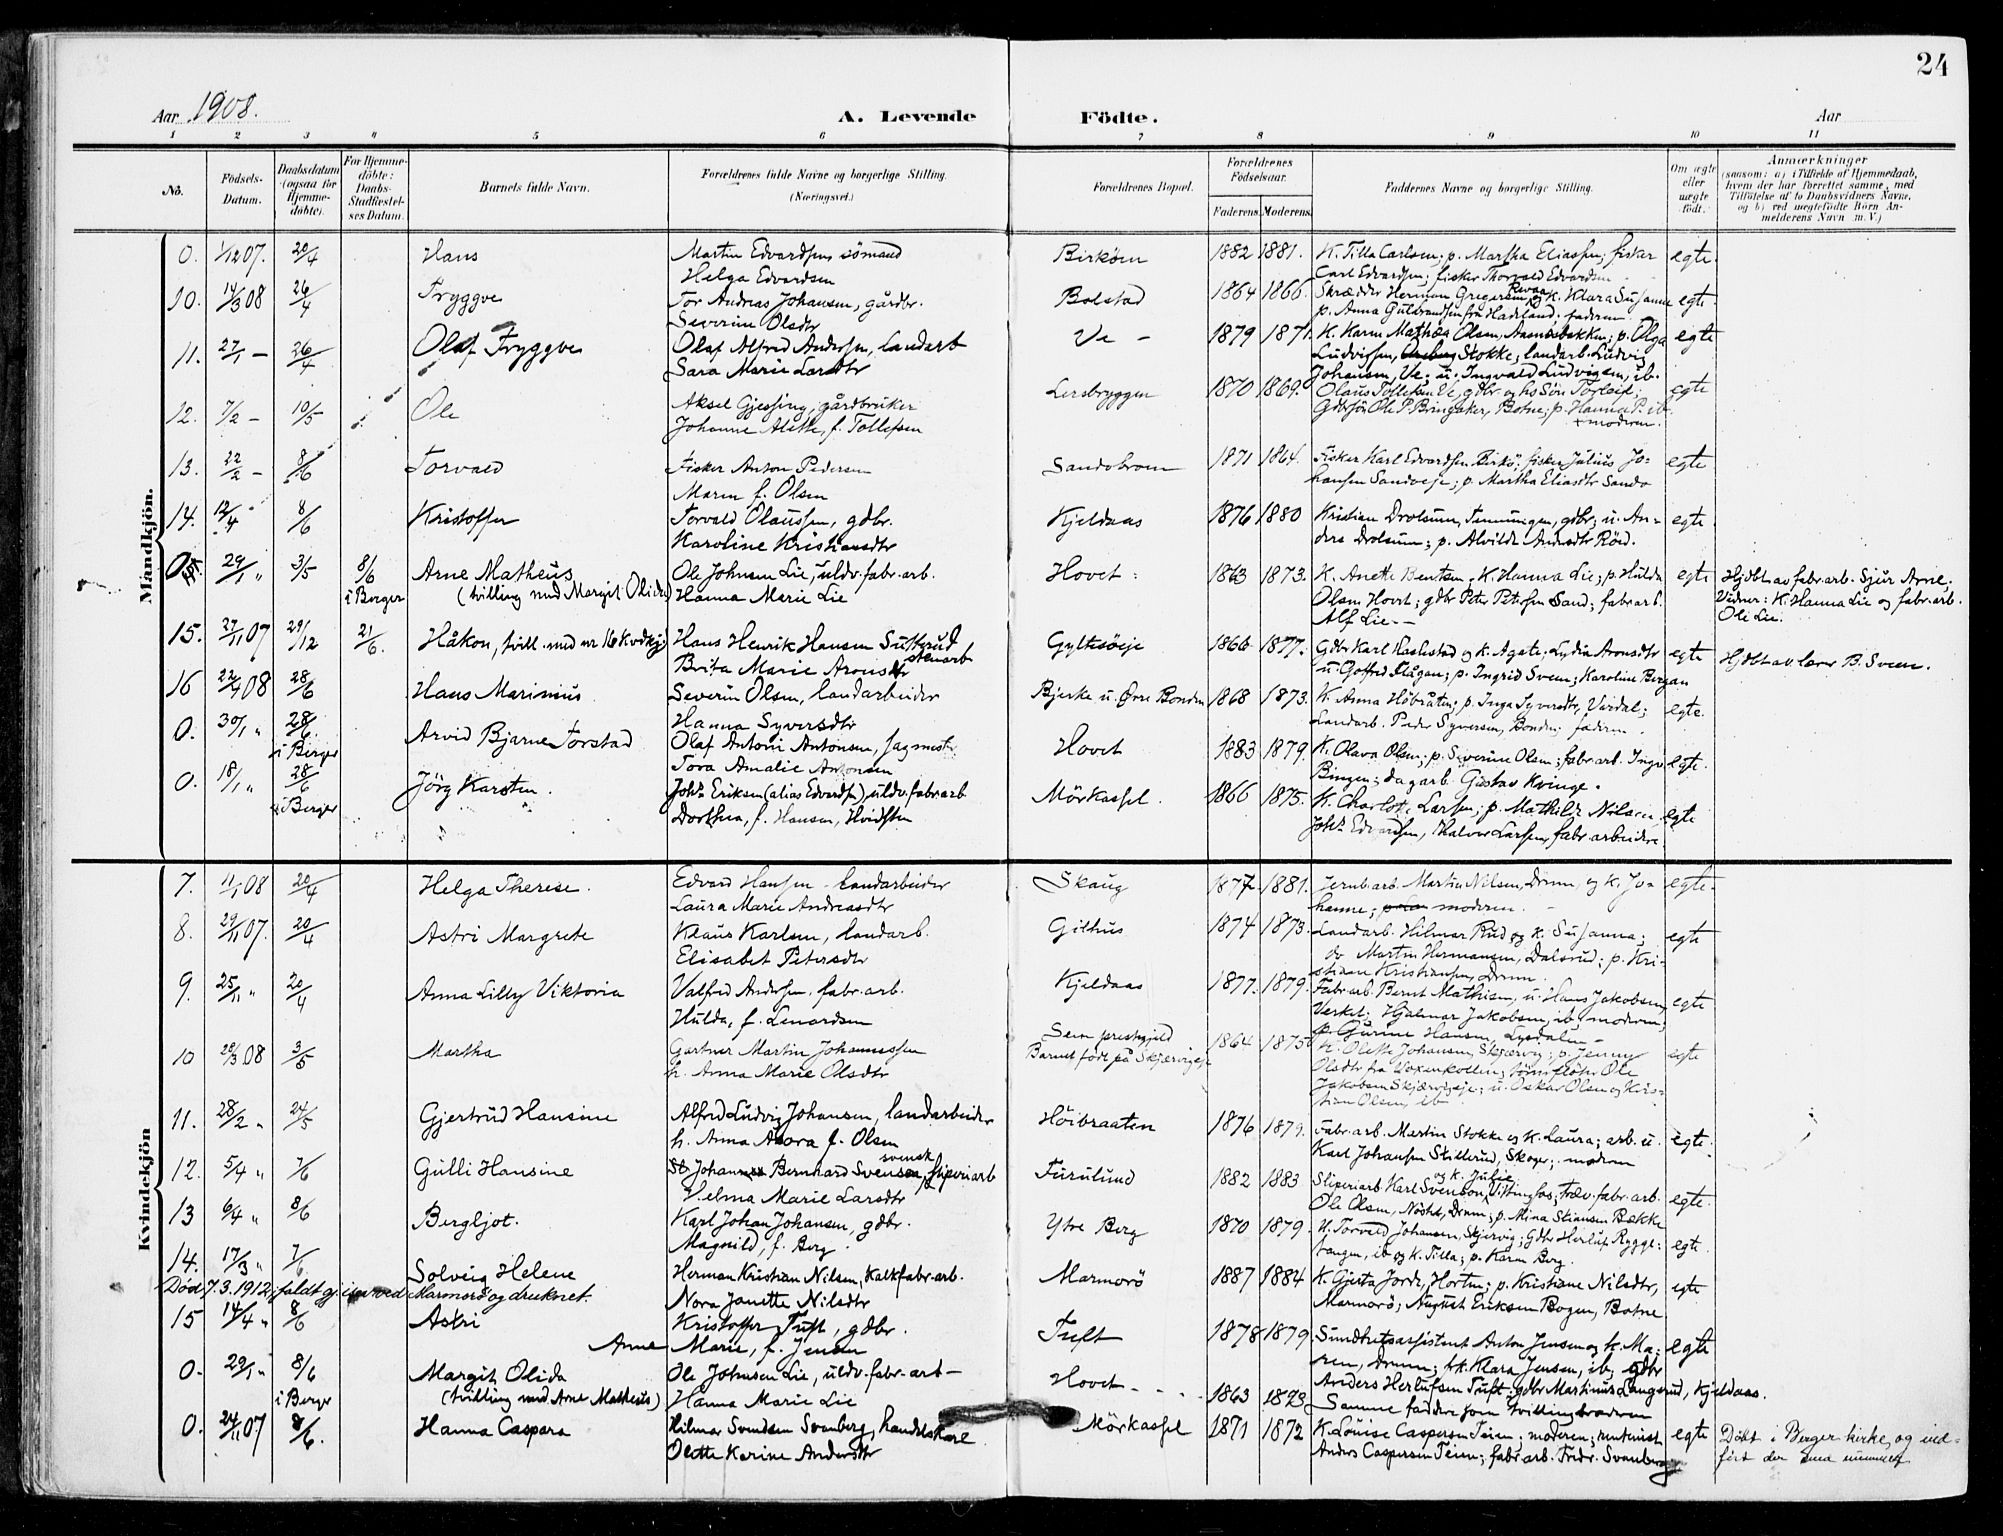 24
Aar 1908.
A. Levende Födte.
Aar
1 2 3 4 5 6 7 8 9 10 11
No.
Födsels-Datum.
Daabsdatum (ogsaa for Hjemmedöbte).
For Hjemmedöbte: Daabs-Stadfæstelses Datum.
Barnets fulde Navn.
Forældrenes fulde Navne og borgerlige Stilling.
(Næringsvei.)
Forældrenes Bopæl.
Forældrenes Födselsaar.
Faderens. Moderens.
Faddernes Navne og borgerlige Stilling.
Om ægte eller uægte födt.
Anmærkninger
(saasom: a) i Tilfælde af Hjemmedaab, hvem der har forrettet samme, med Tilföielse af to Daabsvidners Navne, og b) ved uægtefödte Börn Anmelderens Navn m. V.)
Mandkjön.
0. 1/12 07. 20/4 Hans Martin Edvardsen, sömand Birköen 1882 1881. K. Tilla Carlsen; p. Martha Eliassen; fisker egte.
Helga Edvardsen Carl Edvardsen; fisker Thorvald Edvardsen
10. 14/3 08 26/4 Tryggve Tor Andreas Johansen, gårdbr. Bolstad 1864 1866. Skrædder Herman Gregersen og k. Klara Susanne egte.
Severine Olsdtr p. Anna Gulbrandsen fra Hadeland; faderen
11. 27/1 – 26/4 Olaf Tryggve Olaf Alfred Andersen, landarb Ve – 1879 1871. K. Karen Mathea Olsen, p. Olga egte
Sara Marie Larsdtr Ludvigsen, Stokke; landarb. Ludvig
Johansen, Ve; u. Ingvald Ludvigsen, ib.
12. 7/2 – 10/5 Ole Aksel Gjessing, gårdbruker Lersbryggen 1870 1869. Olaus Tollefsen Ve, gdbr og hs Sön Torleif; egte
Johanne Alette, f. Tollefsen Gdbrsön Ole P. Bringaker, Botne; p. Hanna P. ib.
+ moderen.
13. 22/2 – 8/6 Torvald Fisker Anton Pedersen 1871 1864. Fisker Karl Edvardsen Birkö; fisker Julius Jo- egte
Maren f. Olsen hansen Sandveje; p. Martha Eliasdtr Sando
14. 12/4 8/6 Kristoffer Torvald Olaussen, gdbr. Kjeldaas 1876 1880 Kristian Drolsum, gdbr; u. An- egte.
Karoline Kristiansdtr ders Drolsum; p. Alvilde Andrsdtr Röed.
0. 29/1 " 3/5 8/6 i Berger Arne Matheus Ole Johnsen Lie, uldv. fabr. arb. Hovet 1863 1873. K. Anette Bentsen; K. Hanna Lie; p. Hulda egte Hjdbt av fabr. arb. Sjur Arne.
(tvilling med Margit Olida) Hanna Marie Lie Olsen Hovet; gdbr Peter Petersen Sand; fabr. arb. Vidner: K. Hanna Lie og fabr. arb.
Alf Lie. Ole Lie.
15. 27/11 07 29/12 21/6. Håkon, tvill. med nr 16 kvdkj. Hans Henrik Hansen Sutterud Gyltesöeje 1866 1877. Gdbr Karl Haslestad og k. Agate; Lydia Aronsdtr egte Hjdbt av lærer B. Sveen.
stenarb
Brita Marie Aronsdtr u. Gotfred Hågan; p. Ingrid Sveen; Karoline Bergan
16 22/4 08 28/6 Hans Marinius Severin Olsen, landarbeider Bjerke u. Övre Bonden 1868 1873. K. Anna Höbråten; p. Inga Syversdtr, Vårdal; egte.
Hanna Syversdtr Landarb. Peder Syversen, Bonden; faderen.
0. 30/1 " 28/6 i Berger Arvid Bjarne Torstad Olaf Antoni Antonsen, sagmest. Hovet 1883 1879. K. Olava Olsen; p. Severine Olsen; fabr. arb. Ingv. egte.
Tora Amalie Antonsen Bingen; dagarb. Gustav Kvinge.
0. 18/1 " 28/6 i Berger Jörg Karsten. Johs Eriksen (alias Edvardsen), uldv. fabr. arb Mörkassel. 1866 1875. K. Charlotte Larsen; p. Mathilde Nilsen, egte
Dorthea, f. Hansen, Hvidsten Johs Edvardsen, Halvor Larsen, fabr. arbeidere
Kvindekjön
7. 11/1 08 20/4 Helga Therese. Edvard Hansen – landarbeider Skaug 1877 1881. Jernb. arb. Martin Nilsen, Dramn, og k. Jo- egte.
Laura Marie Andreasdtr hanne; moderen.
8. 29/11 07. 20/4 Astri Margrete Klaus Karlsen, landarb. Gilhus 1874 1873. Landarb. Hilmar Rud og k. Susanna; egte
Elisabet Petersdtr do Martin Hermansen, Dalsrud; p. Kri-
stiane Kristiansen, Dramn.
9. 25/11 " 20/4 Anna Lilly Viktoria Valfred Andersen, fabr. arb. Kjeldaas 1877. 1879. Fabr. arb. Bernt Mathisen, u. Hans Jakobsen, egte
Hulda, f. Lenardsen Verket; Hjalmar Jakobsen, ib; moderen;
p. Gurine Hansen, Lysdalen –
10 28/3 08 3/5 Martha Gartner Martin Johannessen Sem prestegjeld 1864 1875 K. Olette Johansen Skjærvig; p. Jenny egte
h. Anna Marie Olsdtr Barnet födt på Skjærvigeje Olsdtr fra Voxenkollen; tömmerflöter Ole
Jakobsen Skjærvigeje; u. Oskar Olsen og Kris-
tian Olsen, ib
11. 28/2 " 24/5 Gjertrud Hansine Alfred Ludvig Johansen, landarbeider Höibraaten 1876 1879. Fabr. arb. Martin Stokke og k. Laura; arb. u. egte.
h. Anna Aarora f. Olsen Karl Johansen Stillerud, Skoger; moderen
12. 5/4 " 7/6 Gulli Hansine Johannes Bernhard Svenson, svensk sliperiarb Furulund 1882 1883 Sliperiarb. Karl Svenson og k. Julie, Vittingfos; Træv. fabr. arb. egte.
Helma Marie Larsdtr Ole Olsen, Nöste, Dramn; p. Mina Stiansen Bække
13 6/4 " 8/6 Bergljot. Karl Johan Johansen, gdbr. Ytre Berg 1870 1879. K. Torvald Johansen, Skjervig; Gdbr Herlup Rygge- egte.
Magnild, f. Berg. tangen, ib og k. Tilla; p. Karen Berg.
14. 17/3 " 7/6 Solveig Helene Herman Kristian Nilsen, Kalkfabr. arb. Marmorö 1887 1884 K. Gjerta Jorde, Horten; p. Kristiane Nilsdtr, egte
Död 7.3.1912; faldt gj. isen ved Marmorö og druknet. Nora Janette Nilsdtr Marmorö; August Eriksen Bogen, Botne
15 14/4 " 8/6 Astri Kristoffer Tuft, gdbr. Tuft 1878 1879 Sundhetsassistent Anton Jensen og k. Ma- egte
Anne Marie, f. Jensen ren, Dramn; frk. Klara Jensen, ib; gdbr
Anders Herlufsen Tuft; gdbr Martinus Langerud, Kjeldaas.
0. 29/1 " 8/6 i Berger Margit Olida Ole Johnsen Lie, uldv. fabr. arb – Hovet 1863 1873 Samme faddere som tvillingbroderen
(tvilling med Arne Matheus) Hanna Marie Lie
0. 24/11 07 8/6. Hanna Caspara Hilmar Svendsen Svanberg, handelskarl Mörkassel 1871 1872 K. Louise Caspersen Teien; moderen; rentenist egte Döbt i Berger kirke, og ind-
Olette Karine Andersdtr Anders Caspersen Teien; fabr. arb. Fridr. Svanberg fört der med nummer